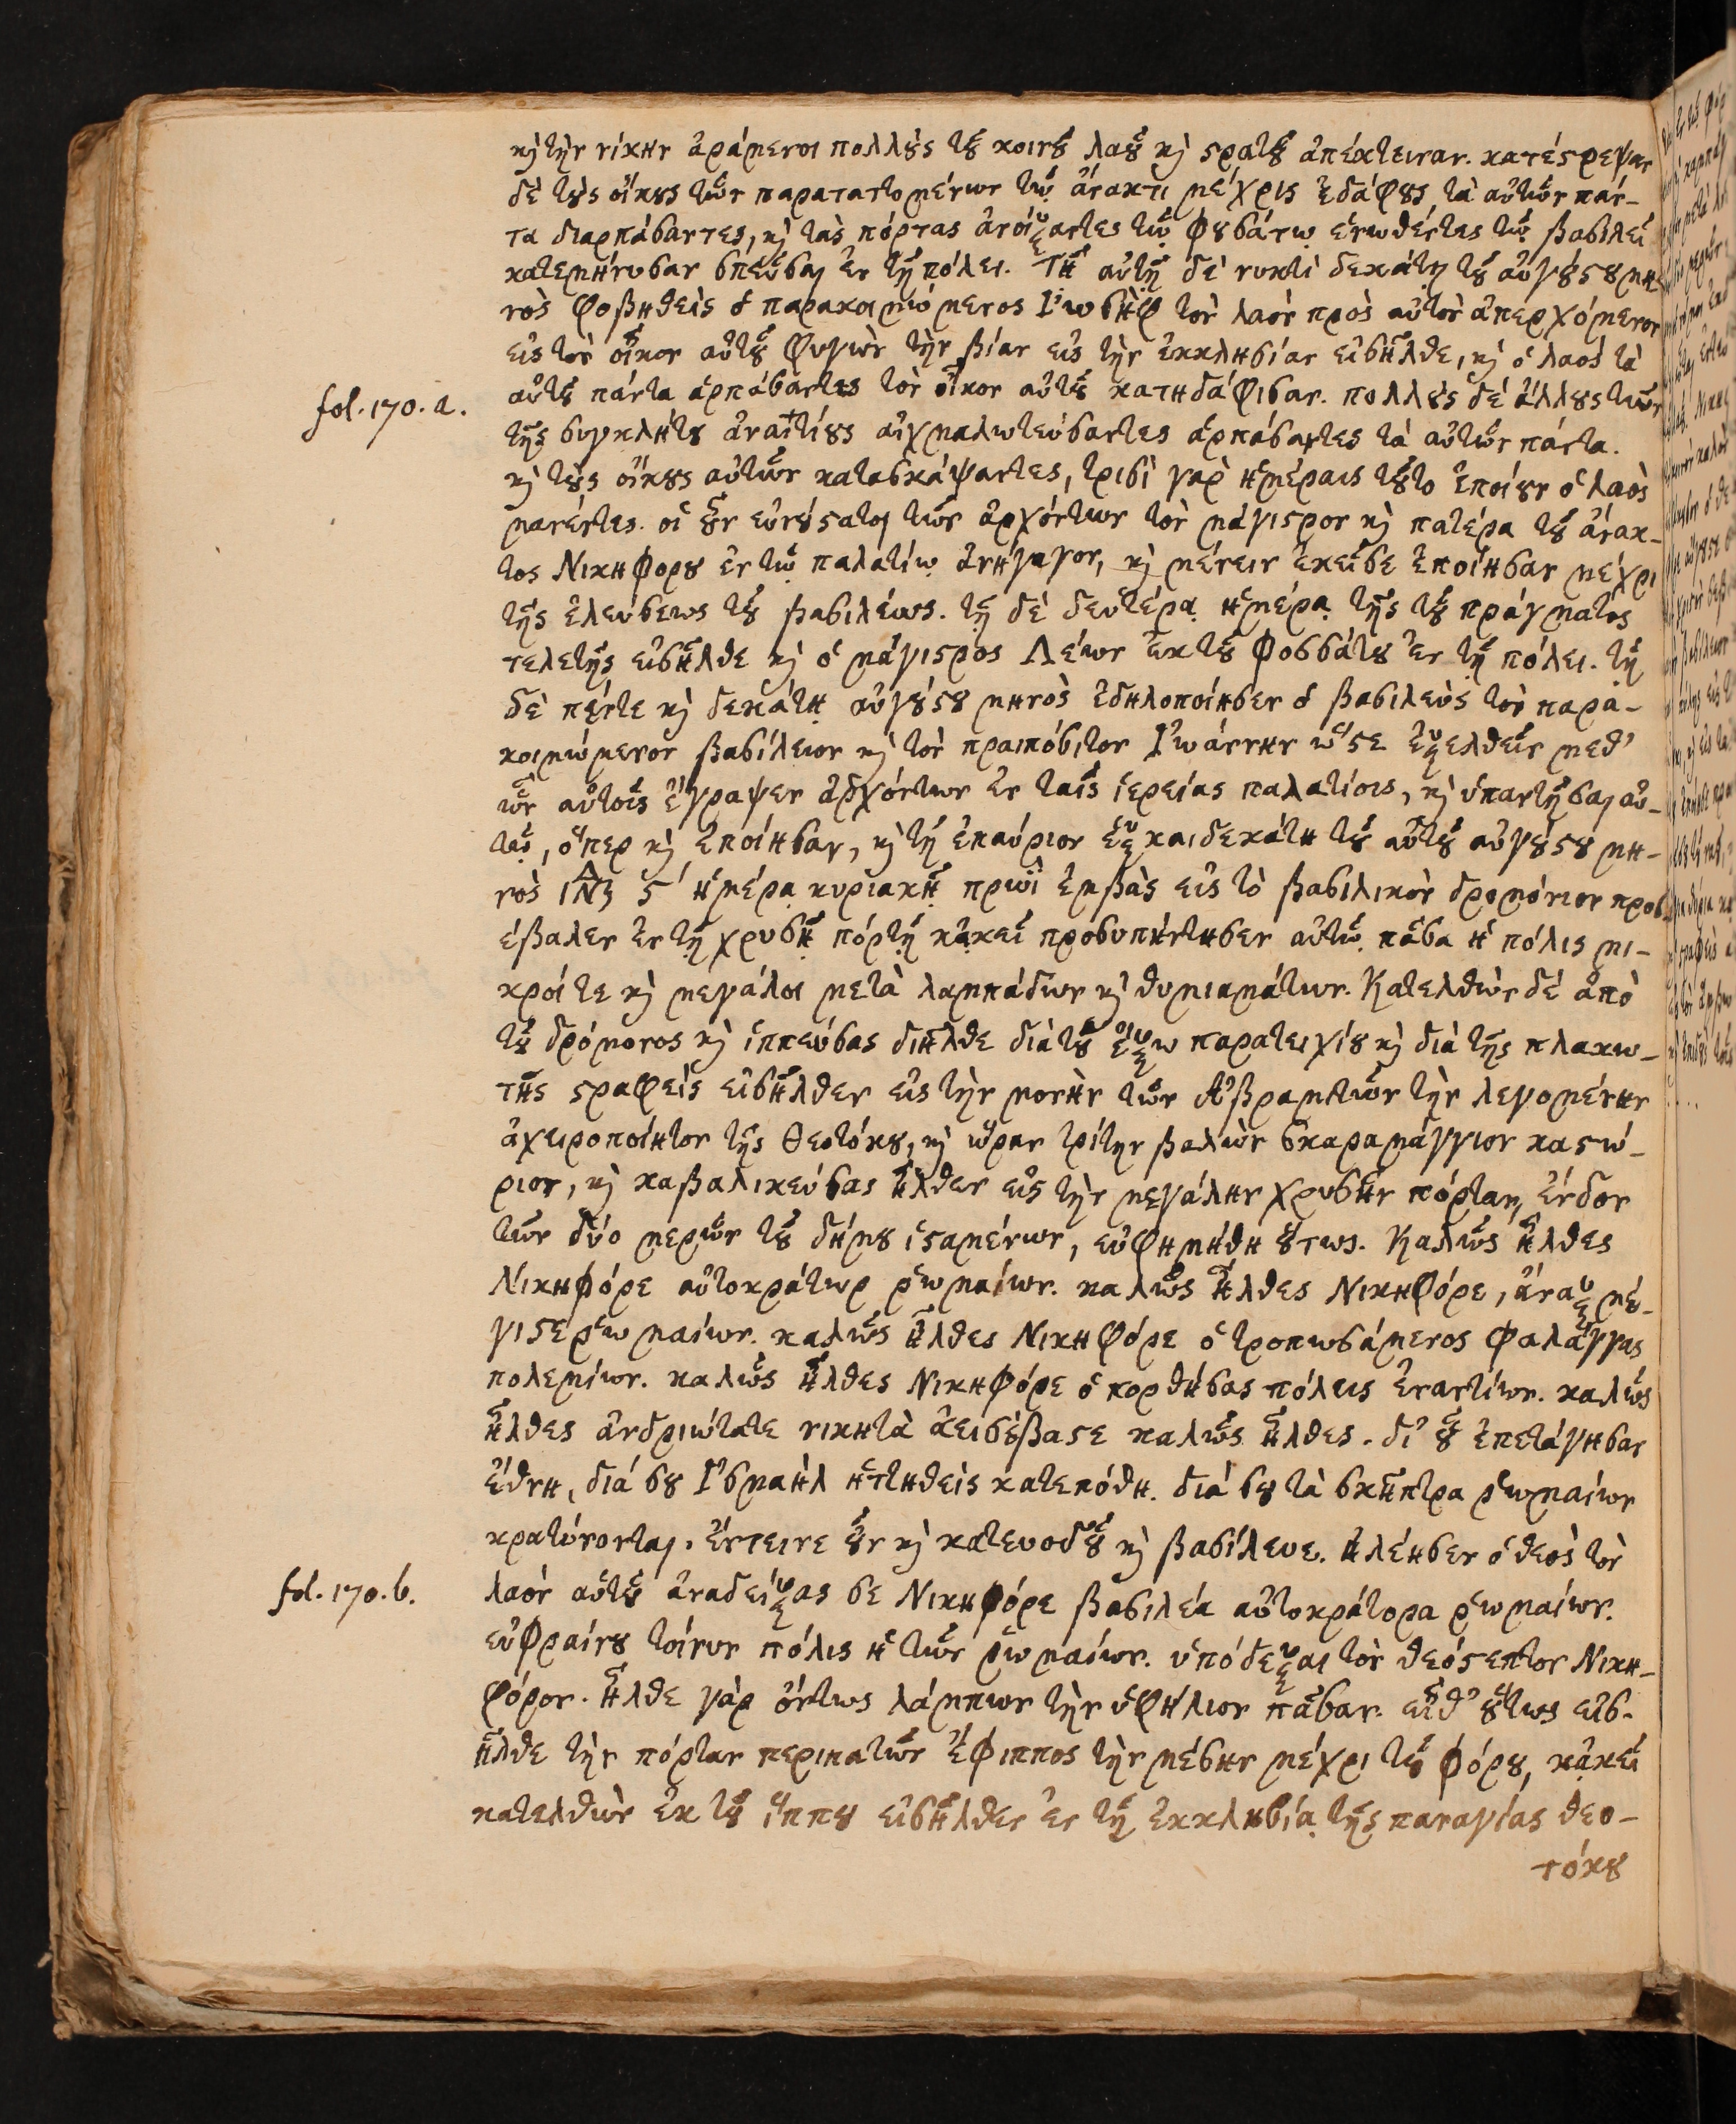 κὴ τὴν νίκην ἀράμενοι πολλοὺς τοῦ κοινοῦ λαοῦ κὴ στρατοῦ ἀπέκτειναν. κατέστρεψαν
δὲ τοὺς οἴκους τῶν παρατατομένων τῷ ἄνακτι μέχρις ἐδάφους, τὰ αὐτῶν πάν-
τα διαρπάσαντες, κὴ τὰς πόρτας ἀνοίξαντες τῷ φουσάτῳ ἑνωθέντες τῷ βασιλεῖ
κατεμήνυσαν σπεῦσαι ἐν τῇ πόλει. Τῇ αὐτῇ δὲ νυκτὶ δεκάτῃ τοῦ αὐγούστου μη-
νὸς φοβηθεὶς ὁ παρακοιμώμενος Ἰωσὴφ τὸν λαὸν πρὸς αὐτὸν ἀπερχόμενον
εἰς τὸν οἶκον αὐτοῦ φυγὼν τὴν βίαν εἰς τὴν ἐκκλησίαν εἰσῆλθε, κὴ ὁ λαὸς τὰ
fol. 170. a. αὐτοῦ πάντα ἁρπάσαντες τὸν οἶκον αὐτοῦ κατηδάφισαν. πολλοὺς δὲ ἄλλους τῶν
τῆς συγκλήτου ἀναιτίους αἰχμαλωτεύσαντες ἁρπάσαντες τὰ αὐτῶν πάντα.
κὴ τοὺς οἴκους αὐτῶν κατασκάψαντες, τρισὶ γὰρ ἡμέραις τοῦτο ἐποίουν ὁ λαὸς
μανέντες. οἱ οὖν εὐνούσταται τῶν ἀρχόντων τὸν μάγιστρον κὴ πατέρα τοῦ ἄνακ-
τος Νικηφόρου ἐν τῷ παλατίῳ ἀνήγαγον, κὴ μένειν ἐκεῖσε ἐποίησαν μέχρι
τῆς ἐλεύσεως τοῦ βασιλέως. τῇ δὲ δευτέρᾳ ἡμέρᾳ τῆς τοῦ πράγματος
τελετῆς εἰσῆλθε κὴ ὁ μάγιστρος Λέων ἐκ τοῦ φοσσάτου ἐν τῇ πόλει. τῇ
δὲ πέντε κὴ δεκάτῃ αὐγούστου μηνὸς ἐδηλοποίησεν ὁ βασιλεὺς τὸν παρα-
κοιμώμενον βασίλειον κὴ τὸν πραιπόσιτον Ἰωάννην ὥστε ἐξελθεῖν μεθ'
ὧν αὐτοῖς ἔγραψεν ἀρχόντων ἐν ταῖς ἱερείας παλατίοις, κὴ ὑπαντῆσαι αὐ-
τῷ, ὅπερ κὴ ἐποίησαν, κὴ τῇ ἐπαύριον ἑξκαιδεκάτῃ τοῦ αὐτοῦ αὐγούστου μη-
νὸς ΙΝΔ ϛʹ ἡμέρᾳ κυριακῇ πρωῒ ἐμβὰς εἰς τὸ βασιλικὸν δρομόνιον προσ-
έβαλεν ἐν τῇ χρυσῇ πόρτῃ κᾀκεῖ προσυπήντησεν αὐτῷ πᾶσα ἡ πόλις μι-
κροί τε κὴ μεγάλοι μετὰ λαμπάδων κὴ θυμιαμάτων. Κατελθὼν δὲ ἀπὸ
τοῦ δρόμονος κὴ ἱππεύσας διῆλθε διὰ τοῦ ἔξω παρατειχίου κὴ διὰ τῆς πλακω-
τῆς στραφεὶς εἰσῆλθεν εἰς τὴν μονὴν τῶν Ἀβραμιτῶν τὴν λεγομένην
ἀχειροποίητον τῆς Θεοτόκου, κὴ ὥραν τρίτην βαλὼν σκαραμάγγιον καστώ-
ριον, κὴ καβαλικεύσας ἦλθεν εἰς τὴν μεγάλην χρυσῆν πόρταν, ἔνδον
τῶν δύο μερῶν τοῦ δήμου ἱσταμένων, εὐφημήθη οὕτως. Καλῶς ἦλθες
Νικηφόρε αὐτοκράτωρ ῥωμαίων. καλῶς ἦλθες Νικηφόρε, ἄναξ μέ-
γιστε ῥωμαίων. καλῶς ἦλθες Νικηφόρε ὁ τροπωσάμενος φαλάγγας
πολεμίων. καλῶς ἦλθες Νικηφόρε ὁ πορθήσας πόλεις ἐναντίων. καλῶς
ἦλθες ἀνδριώτατε νικητὰ ἀεισέβαστε καλῶς ἦλθες. δι' οὗ ἐπετάγησαν
ἔθνη, διά σου Ἰσμαὴλ ἡττηθεὶς κατεπόθη. διά σου τὰ σκῆπτρα ῥωμαίων
κρατύνονται. ἔντεινε οὖν κὴ κατευοδοῦ κὴ βασίλευε. ἠλέησεν ὁ θεὸς τὸν
fol. 170. b. λαὸν αὑτοῦ ἀναδείξας σε Νικηφόρε βασιλέα αὐτοκράτορα ῥωμαίων.
εὐφραίνου τοίνυν πόλις ἡ τῶν ῥωμαίων. ὑπόδεξαι τὸν θεόστεπτον Νικη-
φόρον. ἦλθε γὰρ ὄντως λάμπων τὴν ὑφήλιον πᾶσαν. εἶθ' οὕτως εἰσ-
ῆλθε τὴν πόρταν περιπατῶν ἔφιππος τὴν μέσην μέχρι τοῦ φόρου, κᾀκεῖ
κατελθὼν ἐκ τοῦ ἵππου εἰσῆλθεν ἐν τῇ ἐκκλησίᾳ τῆς παναγίας θεο-
τόκου